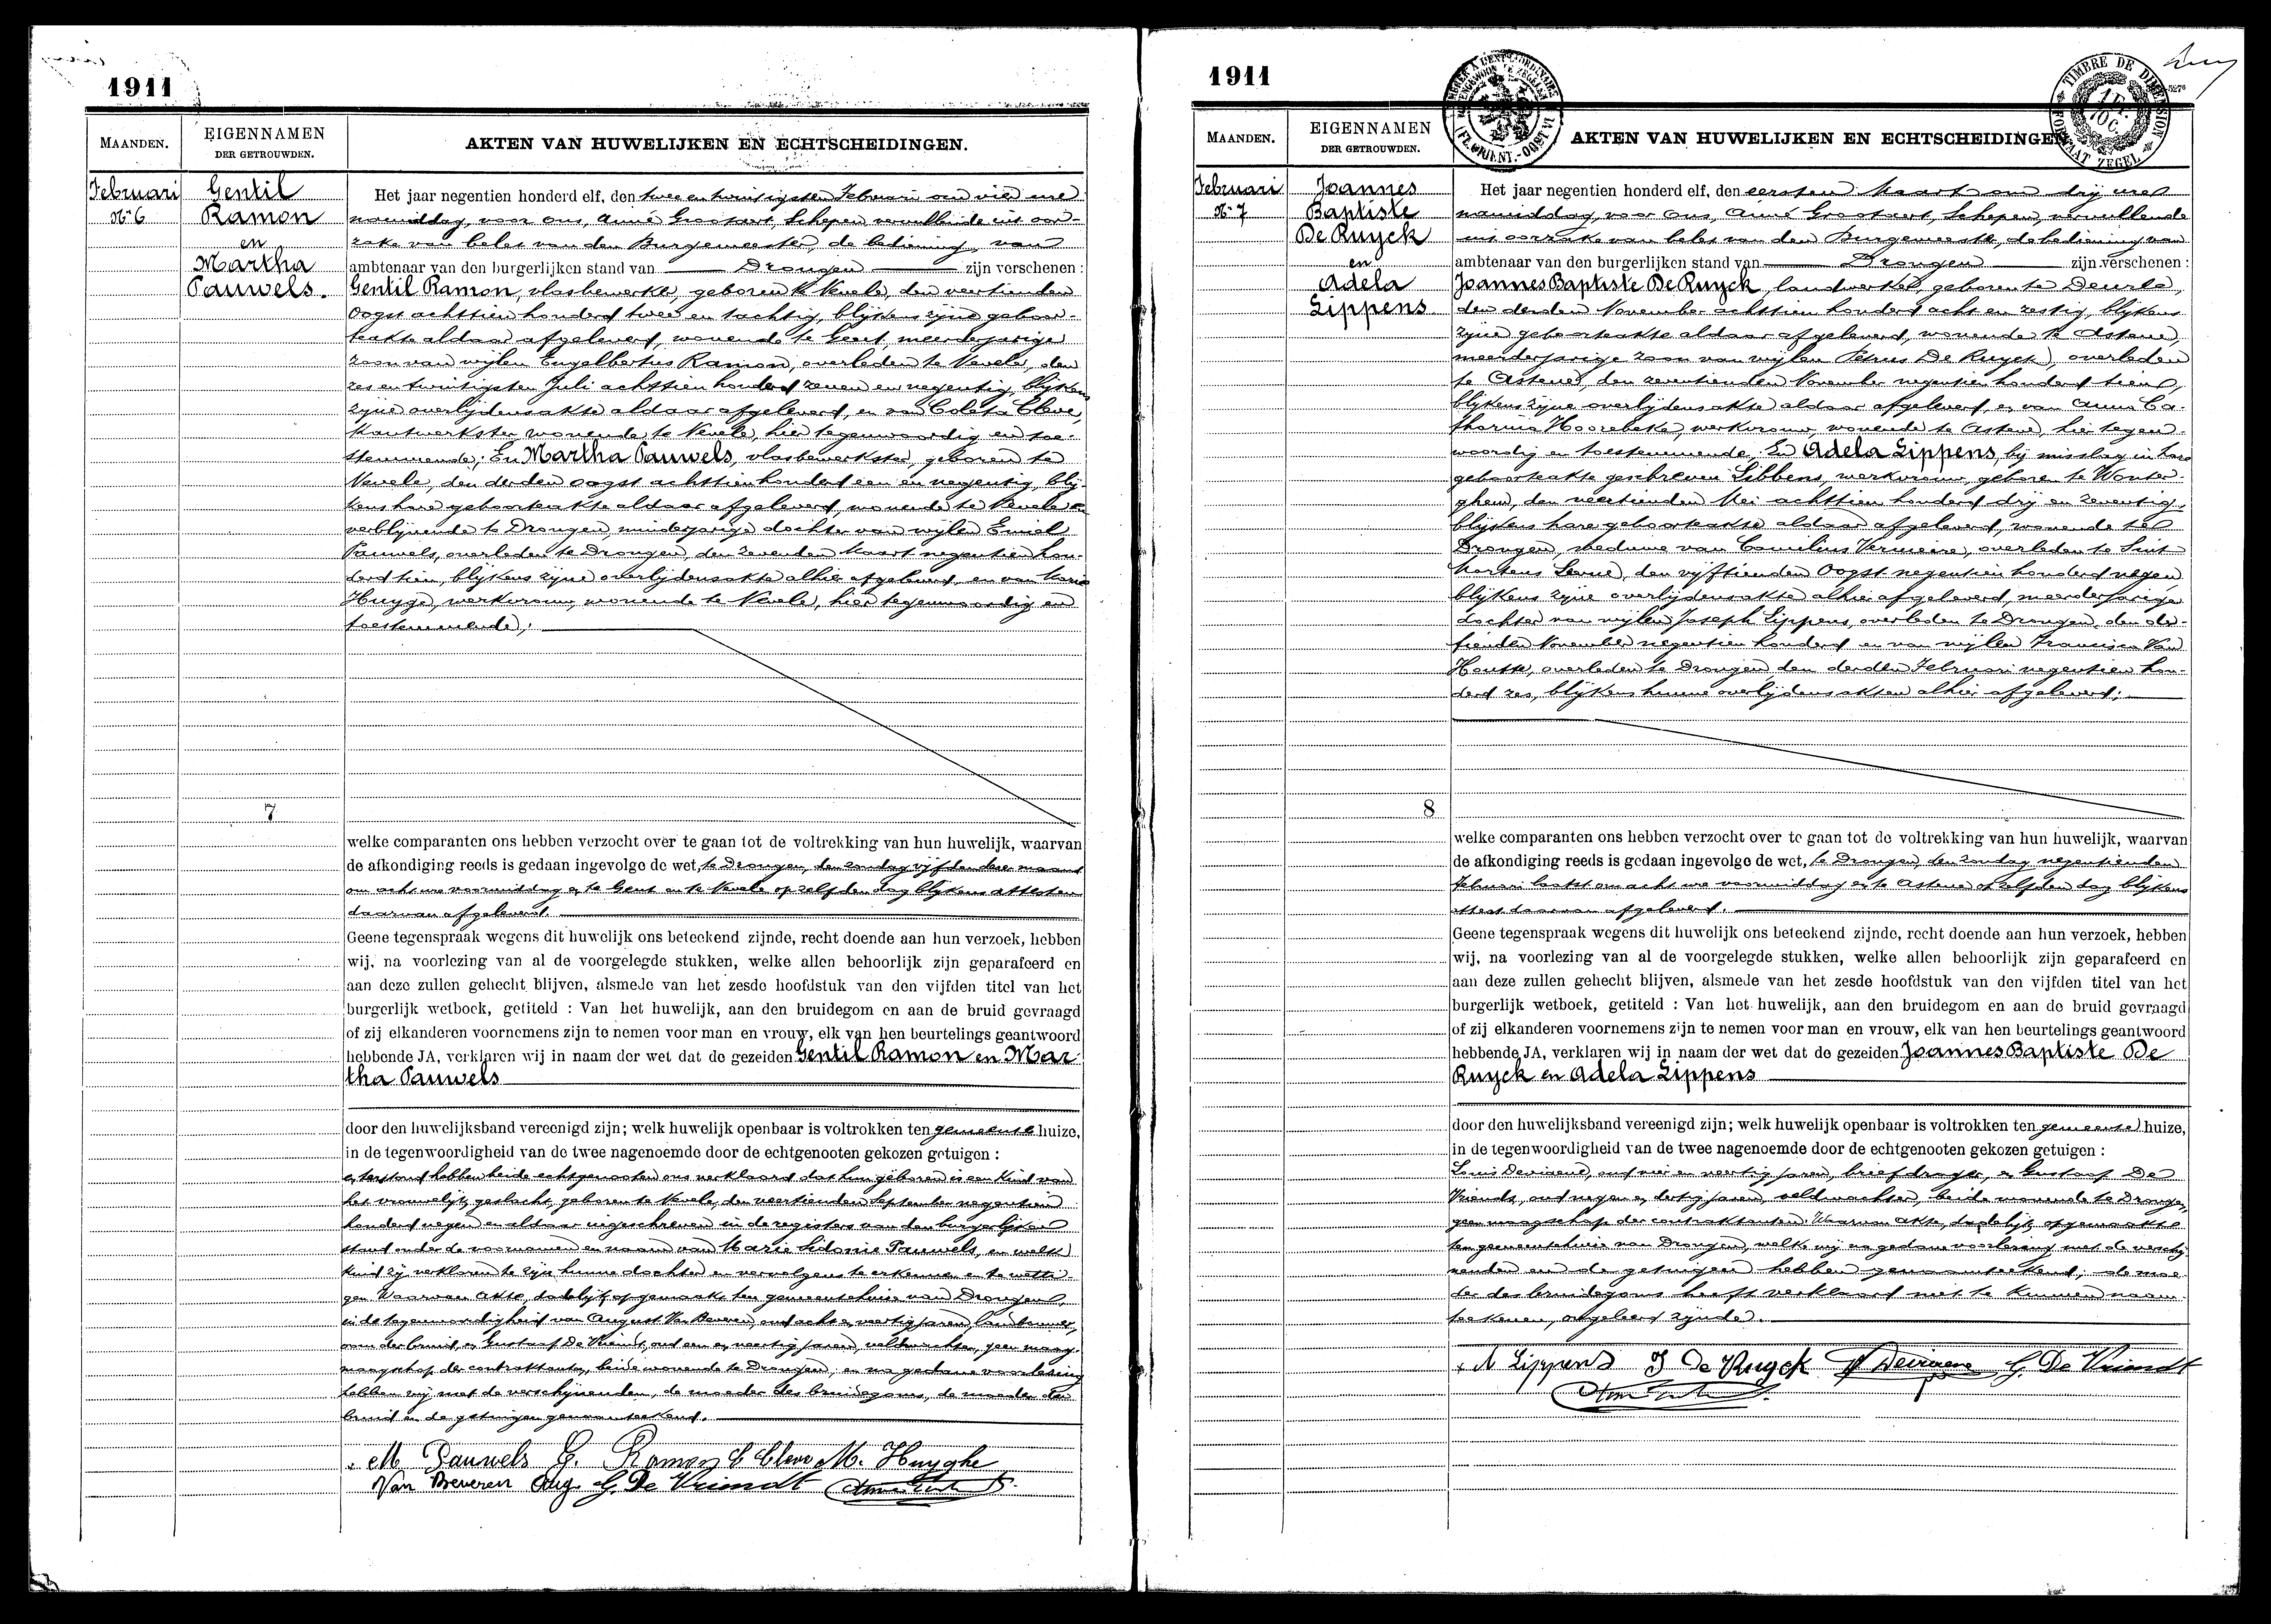 1911
MAANDEN.
EIGENNAMEN
DER GETROUWDEN.
AKTEN VAN HUWELIJKEN EN ECHTSCHEIDINGEN.
Februari
N° 6
Gentil
Ramon
en
Martha
Pauwels.
Het jaar negentien honderd elf, den twee en twintigsten Februari om vier ure
namiddag, voor ons, Aimé Grootaert, Schepen, vervullende uit oor-
zake van belet van den Burgemeester, de bediening van
ambtenaar van den burgerlijken stand van Drongen zijn verschenen :
Gentil Ramon, vlasbewerker, geboren te Nevele, den veertienden
Oogst achttien honderd twee en tachtig, blijkens zijne geboor-
teakte aldaar afgeleverd, wonende te Gent, meerderjarige
zoon van wijlen Engelbertus Ramon, overleden te Nevele, den
zes en twintigsten Juli achttien honderd zeven en negentig, blijkens
zijne overlijdensakte aldaar afgeleverd, en van Coleta Cleve,
kantwerkster, wonende te Nevele, hier tegenwoordig en toe-
stemmende; En Martha Pauwels, vlasbewerkster, geboren te
Nevele, den derden oogst achttien honderd een en negentig, blij-
kens hare geboorteakte aldaar afgeleverd, wonende te Nevele en
verblijvende te Drongen, minderjarige dochter van wijlen Emiel
Pauwels, overleden te Drongen, den zevenden Maart negentien hon-
derd tien, blijkens zijne overlijdensakte alhier afgeleverd, en van Marie
Huyge, werkvrouw, wonende te Nevele, hier tegenwoordig en
toestemmende;
7
welke comparanten ons hebben verzocht over te gaan tot de voltrekking van hun huwelijk, waarvan
de afkondiging reeds is gedaan ingevolge de wet, te Drongen, den zondag vijfden dezer maand
om acht ure voormiddag en te Gent en te Nevele op zelfden dag blijkens attesten
daarvan afgeleverd.
Geene tegenspraak wegens dit huwelijk ons beteekend zijnde, recht doende aan hun verzoek, hebben
wij, na voorlezing van al de voorgelegde stukken, welke allen behoorlijk zijn geparafeerd en
aan deze zullen gehecht blijven, alsmede van het zesde hoofdstuk van den vijfden titel van het
burgerlijk wetboek, getiteld : Van het huwelijk, aan den bruidegom en aan de bruid gevraagd
of zij elkanderen voornemens zijn te nemen voor man en vrouw, elk van hen beurtelings geantwoord
hebbende JA, verklaren wij in naam der wet dat de gezeiden Gentil Ramon en Mar-
tha Pauwels
door den huwelijksband vereenigd zijn; welk huwelijk openbaar is voltrokken ten gemeente huize,
in de tegenwoordigheid van de twee nagenoemde door de echtgenooten gekozen getuigen :
en terstond hebben beide echtgenooten ons verklaard dat hun geboren is een kind van
het vrouwelijk geslacht, geboren te Nevele, den veertienden September negentien
honderd negen en aldaar ingeschreven in de registers van den burgerlijken
stand onder de voornamen en naam van Marie Sidonie Pauwels, en welk
kind zij verklaren te zijn hunne dochter en vervolgens te erkennen en te wetti-
gen Waarvan akte, dadelijk opgemaakt ten gemeentehuize van Drongen,
in de tegenwoordigheid van August Van Beveren, oud acht en veertig jaren, landbouwer,
oom der bruid, en Gustaaf De Vriendt, oud een en veertig jaren, veldwachter, geen maag-
maagschap der contraktanten, beide wonende te Drongen; en na gedane voorlezing
hebben wij met de verschijnenden, de moeder des bruidegoms, de moeder der
bruid en de getuigen genaamteekend.
M Pauwels G. Ramon C Cleve M. Huyghe
Van Beveren Aug. G. De Vriendt
1911
TIMBRE DE DIMENSION
FORMAAT ZEGEL
1 Fr.
10 C.
MAANDEN.
EIGENNAMEN
DER GETROUWDEN.
AKTEN VAN HUWELIJKEN EN ECHTSCHEIDINGEN
Februari
N° 7
Joannes
Baptiste
De Ruyck
en
Adela
Lippens
Het jaar negentien honderd elf, den eersten Maart om drij ure
namiddag, voor ons, Aimé Grootaert, Schepen, vervullende
uit oorzake van belet van den Burgemeester, de bediening van
ambtenaar van den burgerlijken stand van Drongen zijn verschenen :
Joannes Baptiste De Ruyck, landwerker, geboren te Deurle,
den derden November achttien honderd acht en zestig, blijkens
zijne geboorteakte aldaar afgeleverd, wonende te Astene,
meerderjarige zoon van wijlen Petrus De Ruyck, overleden
te Astene, den zeventienden November negentien honderd tien,
blijkens zijne overlijdensakte aldaar afgeleverd, en van Anna Ca-
tharina Hoorebeke, werkvrouw, wonende te Astene, hier tegen-
woordig en toestemmende; En Adela Lippens, bij misslag in hare
geboorteakte geschreven Libbens, werkvrouw, geboren te Wonter-
ghem, den veertienden Mei achttien honderd drij en zeventig,
blijkens hare geboorteakte aldaar afgeleverd, wonende te
Drongen, weduwe van Camilius Vermeire, overleden te Sint
Martens Leerne, den vijftienden Oogst negentien honderd negen,
blijkens zijne overlijdensakte alhier afgeleverd, meerderjarige
dochter van wijlen Joseph Lippens, overleden te Drongen, den der-
tienden November negentien honderd en van wijlen Francisca Van
Houtte, overleden te Drongen, den derden Februari negentien hon-
derd zes, blijkens hunne overlijdensakten alhier afgeleverd;
8
welke comparanten ons hebben verzocht over te gaan tot de voltrekking van hun huwelijk, waarvan
de afkondiging reeds is gedaan ingevolge de wet, te Drongen, den zondag negentienden
Februari laatst om acht ure voormiddag en te Astene op zelfden dag blijkens
attest daarvan afgeleverd.
Geene tegenspraak wegens dit huwelijk ons beteekend zijnde, recht doende aan hun verzoek, hebben
wij, na voorlezing van al de voorgelegde stukken, welke allen behoorlijk zijn geparafeerd en
aan deze zullen gehecht blijven, alsmede van het zesde hoofdstuk van den vijfden titel van het
burgerlijk wetboek, getiteld : Van het huwelijk, aan den bruidegom en aan de bruid gevraagd
of zij elkanderen voornemens zijn te nemen voor man en vrouw, elk van hen beurtelings geantwoord
hebbende JA, verklaren wij in naam der wet dat de gezeiden Joannes Baptiste De
Ruyck en Adela Lippens
door den huwelijksband vereenigd zijn; welk huwelijk openbaar is voltrokken ten gemeente huize,
in de tegenwoordigheid van de twee nagenoemde door de echtgenooten gekozen getuigen :
Louis oud en veertig jaren, briefdrager, en Gustaaf De
Vriendt, oud negen en dertig jaren, veldwachter, beide wonende te Drongen,
geen maagschap der contraktanten. Waarvan akte, dadelijk opgemaakt
ten gemeentehuize van Drongen, welke wij na gedane voorlezing met de verschij-
nenden en de getuigen hebben genaamteekend; de moe-
der des bruidegoms heeft verklaard niet te kunnen naam-
teekenen, ongeleerd zijnde.
A Lippens J De Ruyck G. De Vriendt